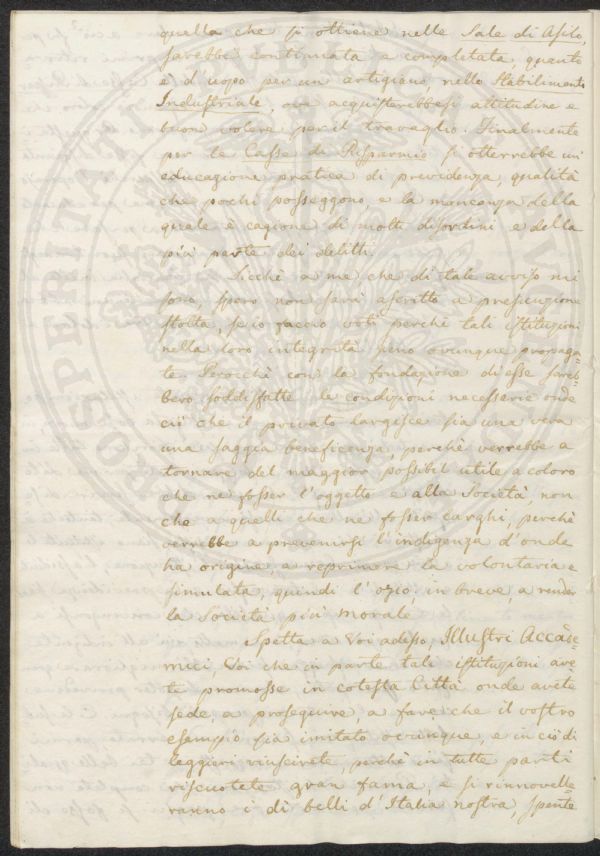 quella che si ottiene nelle Sale di Asilo,
sarebbe continuata e completata, quanto
è d'uopo per un artigiano, nello Stabilimento
Industriale, ove acquisterebbesi attitudine e
buon volere per il travaglio. Finalmente
per le Casse di Risparmio si otterrebbe un'
educazione pratica di previdenza, qualità
che pochi posseggono, e la mancanza della
quale è cagione di molti disordini e della
più parte dei delitti.
Sicchè a me che di tale avviso mi
sono, spero non sarà ascritto a presunzione
stolta, se io faccio voti perchè tali istituzioni
nella loro integrità sieno ovunque propaga=
te. Imrocchè con la fondazione di esse sareb=
bero soddisfatte le condizioni necessarie onde
ciò che il privato largisce sia una vera
una saggia beneficenza, perchè verrebbe a
tornare del maggior possibil utile a coloro
che ne fosser l'oggetto e alla Società, non
che a quelli che ne fosser larghi, perchè
verrebbe a prevenirsi l'indigenza d'onde
ha origine, a reprimere la volontaria e
simulata, quindi l'ozio, in breve, a render
la Società più morale.
Spetta a Voi adesso, Illustri Accade=
mici, Voi che in parte tali istituzioni ave=
te promosse in cotesta Città onde avete
sede, a proseguire, a fare che il vostro
esempio sia imitato ovunque, e in ciò di
leggieri riuscirete, perchè in tutte parti
riscuotete gran fama, e si rinnovelle=
ranno i dì belli d'Italia nostra, spente
PROSPERITATI PUBLICAE AUGENDAE